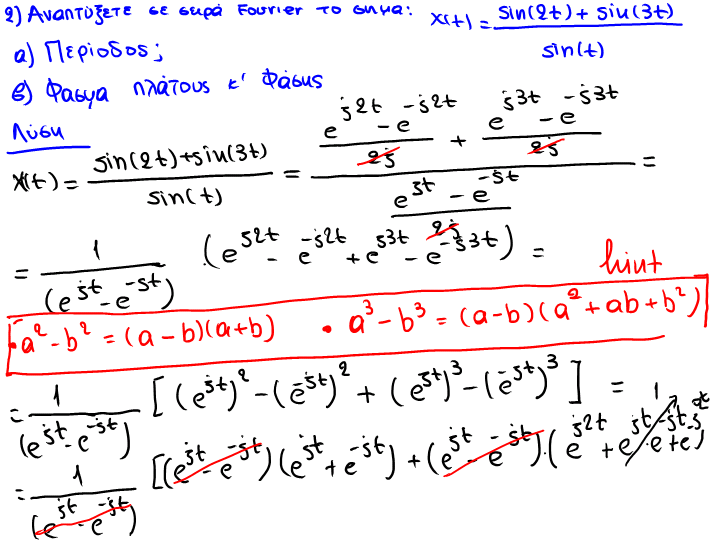 2) Αναπτύξετε σε σειρά Fourier το σημα: x(t) = (sin(2t) + sin(3t)) / sin(t)
α) Περίοδος;
β) Φασμα πλάτους κ' Φάσης
Λύση
x(t) = (sin(2t)+sin(3t)) / sin(t) = ((e^{j2t} - e^{-j2t}) / 2j + (e^{j3t} - e^{-j3t}) / 2j) / ((e^{jt} - e^{-jt}) / 2j) =
= 1 / (e^{jt} - e^{-jt}) · (e^{j2t} - e^{-j2t} + e^{j3t} - e^{-j3t}) =
hint
• a² - b² = (a - b)(a + b) • a³ - b³ = (a-b)(a² + ab + b²)
= 1 / (e^{jt} - e^{-jt}) [(e^{jt})² - (e^{-jt})² + (e^{jt})³ - (e^{-jt})³] =
= 1 / (e^{jt} - e^{-jt}) [(e^{jt} - e^{-jt})(e^{jt} + e^{-jt}) + (e^{jt} - e^{-jt}) · (e^{j2t} + e^{jt} · e^{-jt} + e